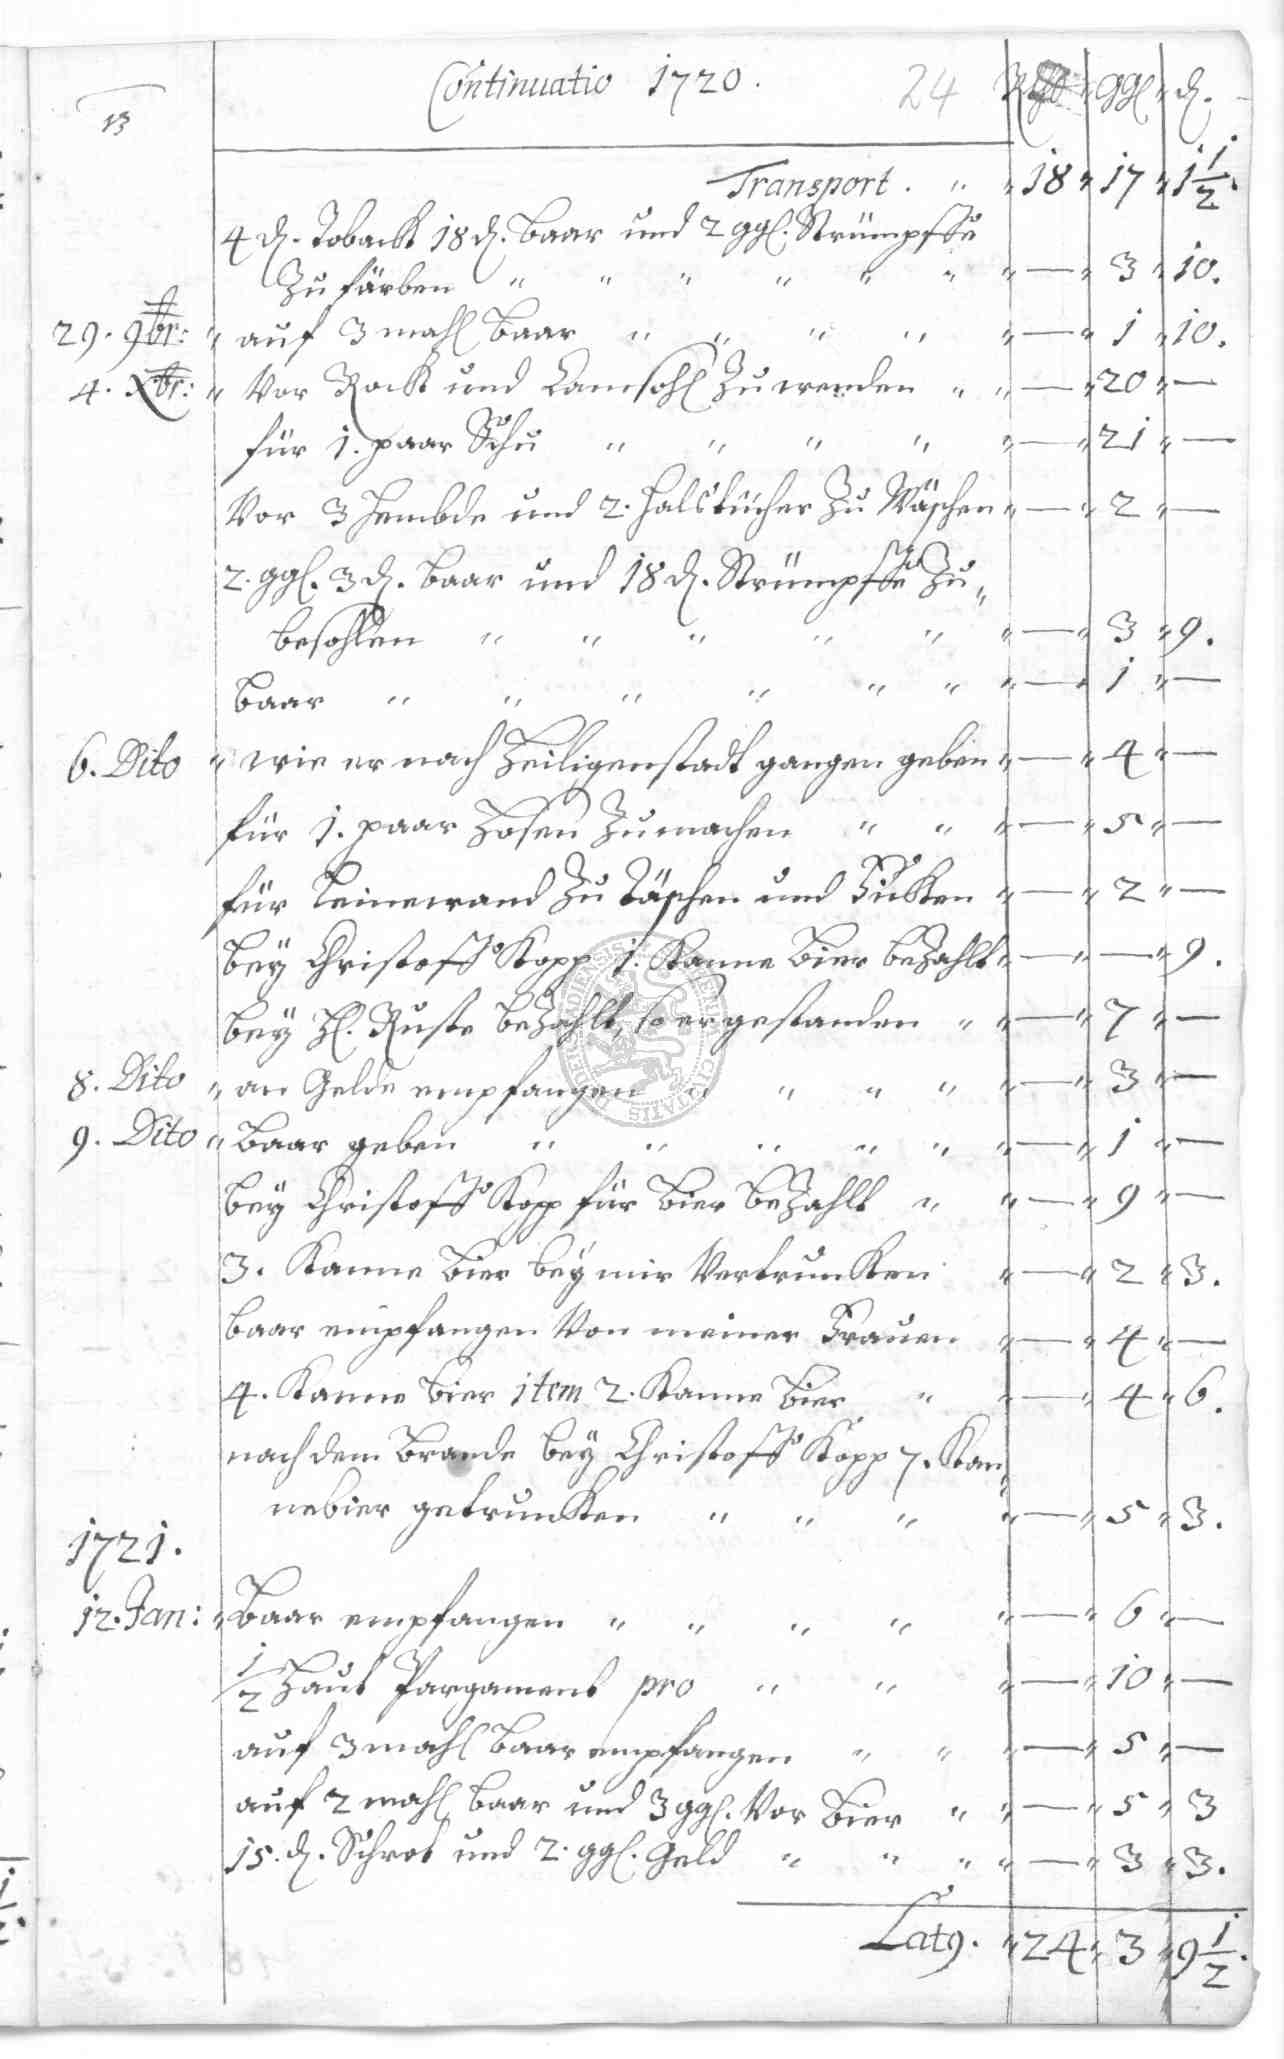 Continuatio 1720. 24 Rthl ggl d.
13
Transport. " " 18 " 17 " 1 1/2.
4 d. Toback 18 d. baar und 2 ggl. Strümpffe
Zu färben " " " " " " " — " 3 " 10.
29. 9br: " auf 3 mahl baar " " " " " — " 1 " 10.
4. Xbr: " Vor Rock und Camsohl Zu wenden " " — " 20 " —
für 1. paar Schu " " " " " — " 21 " —
Vor 3 Hembde und 2. Halstücher Zu Wäschen " — " 2 " —
2. ggl. 3 d. baar und 18 d. Strümpffe Zu "
besohlen " " " " " " — " 3 " 9.
baar " " " " " " " — " 1 " —
6. Dito " wie er nach Heiligenstadt gangen geben " — " 4 " —
für 1. paar Hosen Zu machen " " " — " 5 " —
für Leinewand Zu Täschen und Futter " — " 2 " —
bey Christoff Kopp 1. Kanne bier bezahlt " — " — " 9.
bey H. Ruste bezahlt, so er gestanden " " — " 7 " —
8. Dito " an Gelde empfangen " " " " " — " 3 " —
9. Dito " Baar geben " " " " " " — " 1 " —
bey Christoff Kopp für bier bezahlt " " — " 9 " —
3. Kanne bier bey mir Vertruncken " — " 2 " 3.
baar empfangen Von meiner Frauen " — " 4 " —
4. Kanne bier item 2. Kanne bier " " — " 4 " 6.
nach dem Brande bey Christoff Kopp 7. Kan "
nebier getruncken " " " " — " 5 " 3.
1721.
12. Jan: " Baar empfangen " " " " " — " 6 " —
1/2 Haut Pargament pro " " " — " 10 " —
auf 3 mahl baar empfangen " " " — " 5 " —
auf 2 mahl baar und 3 ggl. Vor bier " " — " 5 " 3
15. d. Schrot und 2. ggl. Geld " " " " — " 3 " 3.
Lat9. " 24 " 3 " 9 1/2.